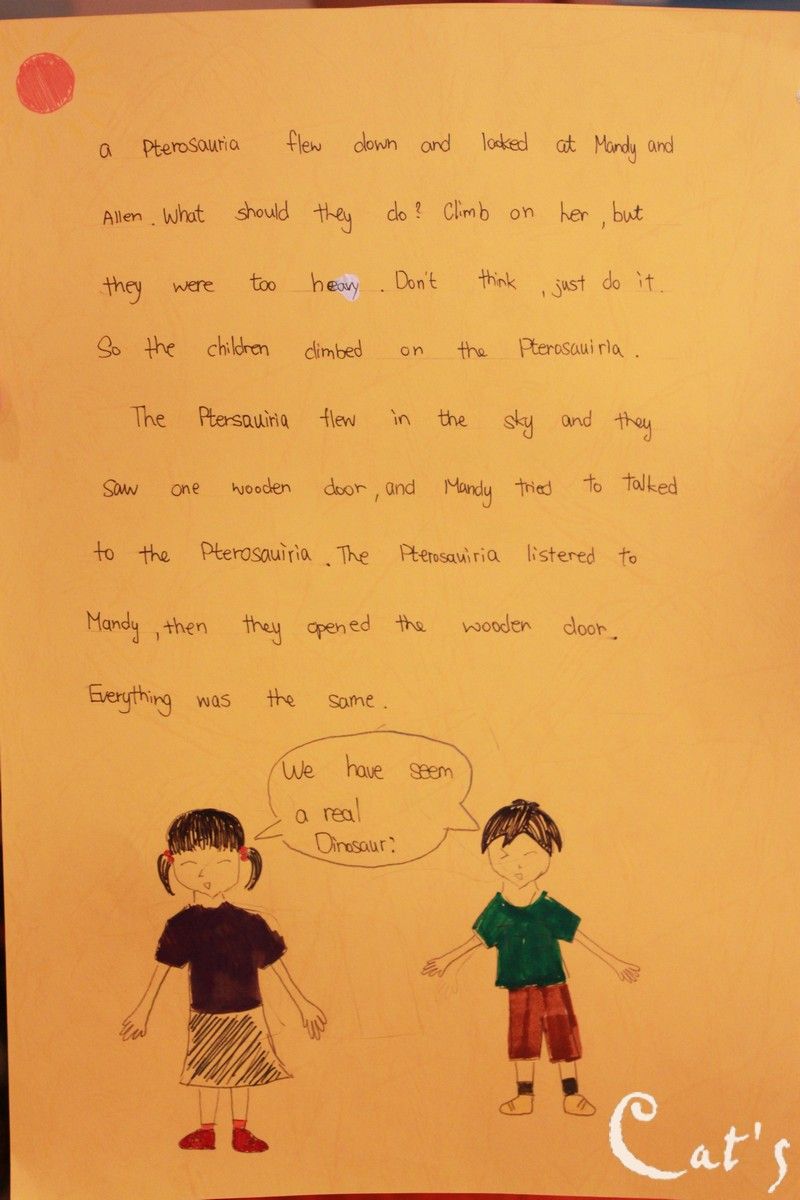 a Pterosauria flew down and looked at Mandy and
Allen. What should they do? Climb on her, but
they were too heavy. Don't think, just do it.
So the children climbed on the Pterosauiria.
The Ptersauiria flew in the sky and they
saw one wooden door, and Mandy tried to talked
to the Pterosauiria. The Pterosauiria listered to
Mandy, then they opened the wooden door.
Everything was the same.
We have seem
a real
Dinosaur?
Cat's